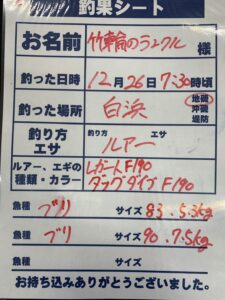 釣果シート
お名前 竹輪のランクル 様
釣った日時 12月26日7:30時頃
釣った場所 白浜 地磯 沖磯 堤防
釣り方 エサ 釣り方 ルアー エサ
ルアー、エギの種類・カラー レガートF190
ダックダイブF190
魚種 ブリ サイズ 83. 5.3kg
魚種 ブリ サイズ 90. 7.5kg
魚種 サイズ
お持ち込みありがとうございました。